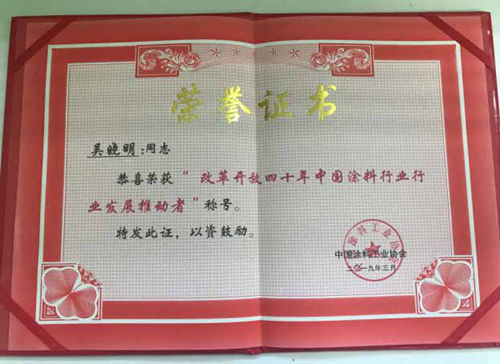 荣誉证书
吴晚明:同志
恭喜荣获“改革开放四十年中国涂料行业行
业发展推动者”称号。
特发此证,以资鼓励。
中国涂料工业协会
二〇一九年三月